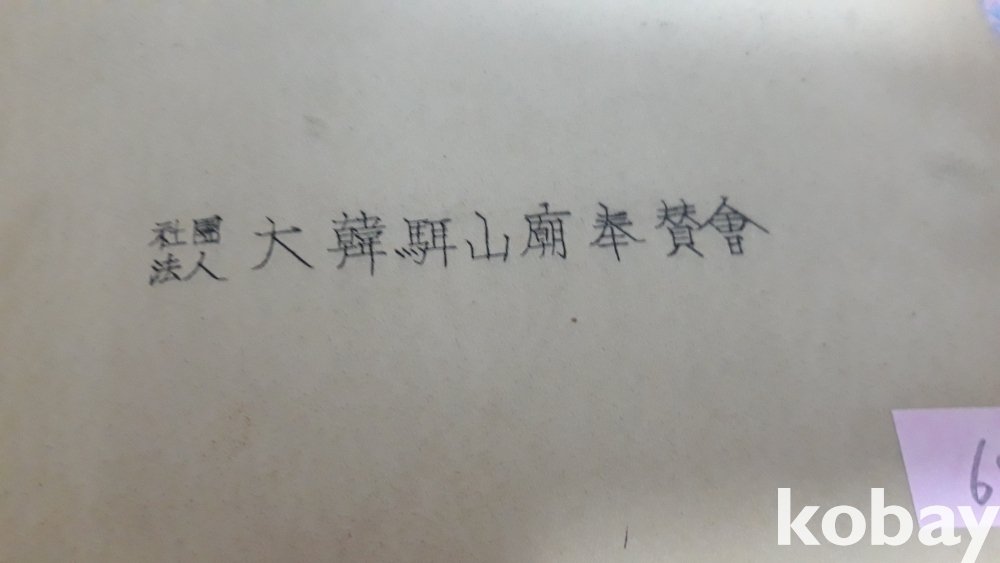 社團
法人 大韓駬山廟奉贊會
6
kobay